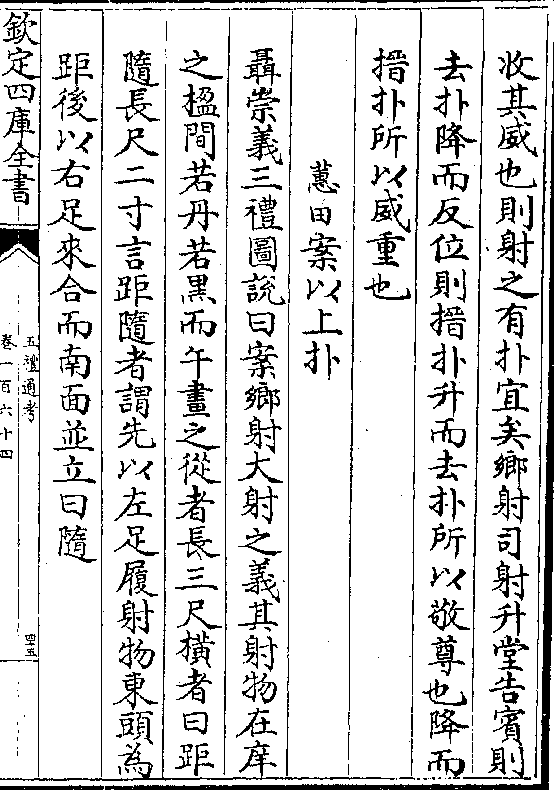 收其威也則射之有扑宜矣鄉射司射升堂告賓則
去扑降而反位則搢扑升而去扑所以敬尊也降而
搢扑所以威重也
蕙田案以上扑
聶崇義三禮圖說曰案鄉射大射之義其射物在庠
之楹間若丹若黑而午畫之從者長三尺橫者曰距
隨長尺二寸言距隨者謂先以左足履射物東頭為
距後以右足來合而南面並立曰隨
欽定四庫全書
五禮通考
卷一百六十四
四五